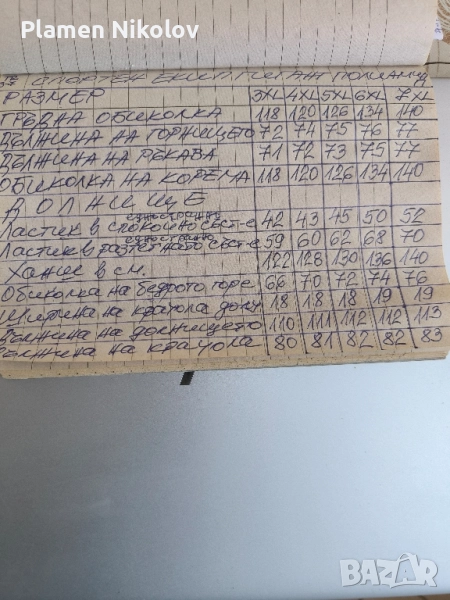 Plamen Nikolov
СПОРТЕН ЕКИП ГИГАНТ ПОЛИАМИД
РАЗМЕР 3XL 4XL 5XL 6XL 7XL
ГРЪДНА ОБИКОЛКА 118 120 126 134 140
ДЪЛЖИНА НА ГОРНИЩЕТО 72 74 75 76 77
ДЪЛЖИНА НА РЪКАВА 71 72 73 75 77
ОБИКОЛКА НА КОРЕМА 118 120 126 134 140
ДОЛНИЩЕ
Ластик в спокойно едностранно със-е 42 43 45 50 52
Ластик в разтегнато едностранно със-е 59 60 62 68 70
Ханш в см. 122 128 130 136 140
Обиколка на бедрото горе 66 70 72 74 76
Ширина на крачола долу 18 18 18 19 19
Дължина на долнището 110 111 112 112 113
Дължина на крачола 80 81 82 82 83
BAZAR